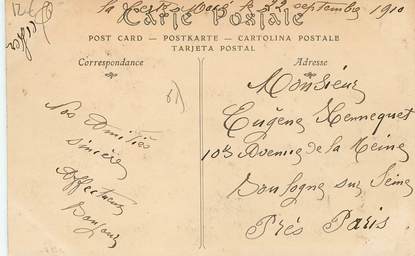 le 22 septembre 1910
Carte Postale
POST CARD — POSTKARTE — CARTOLINA POSTALE
TARJETA POSTAL
Correspondance
Adresse
Nos Amitiés
sincères
Affectueux
Bonjour
Monsieur
Eugène Hennequet
10 bis Avenue de la Reine
Boulogne sur Seine
Près Paris